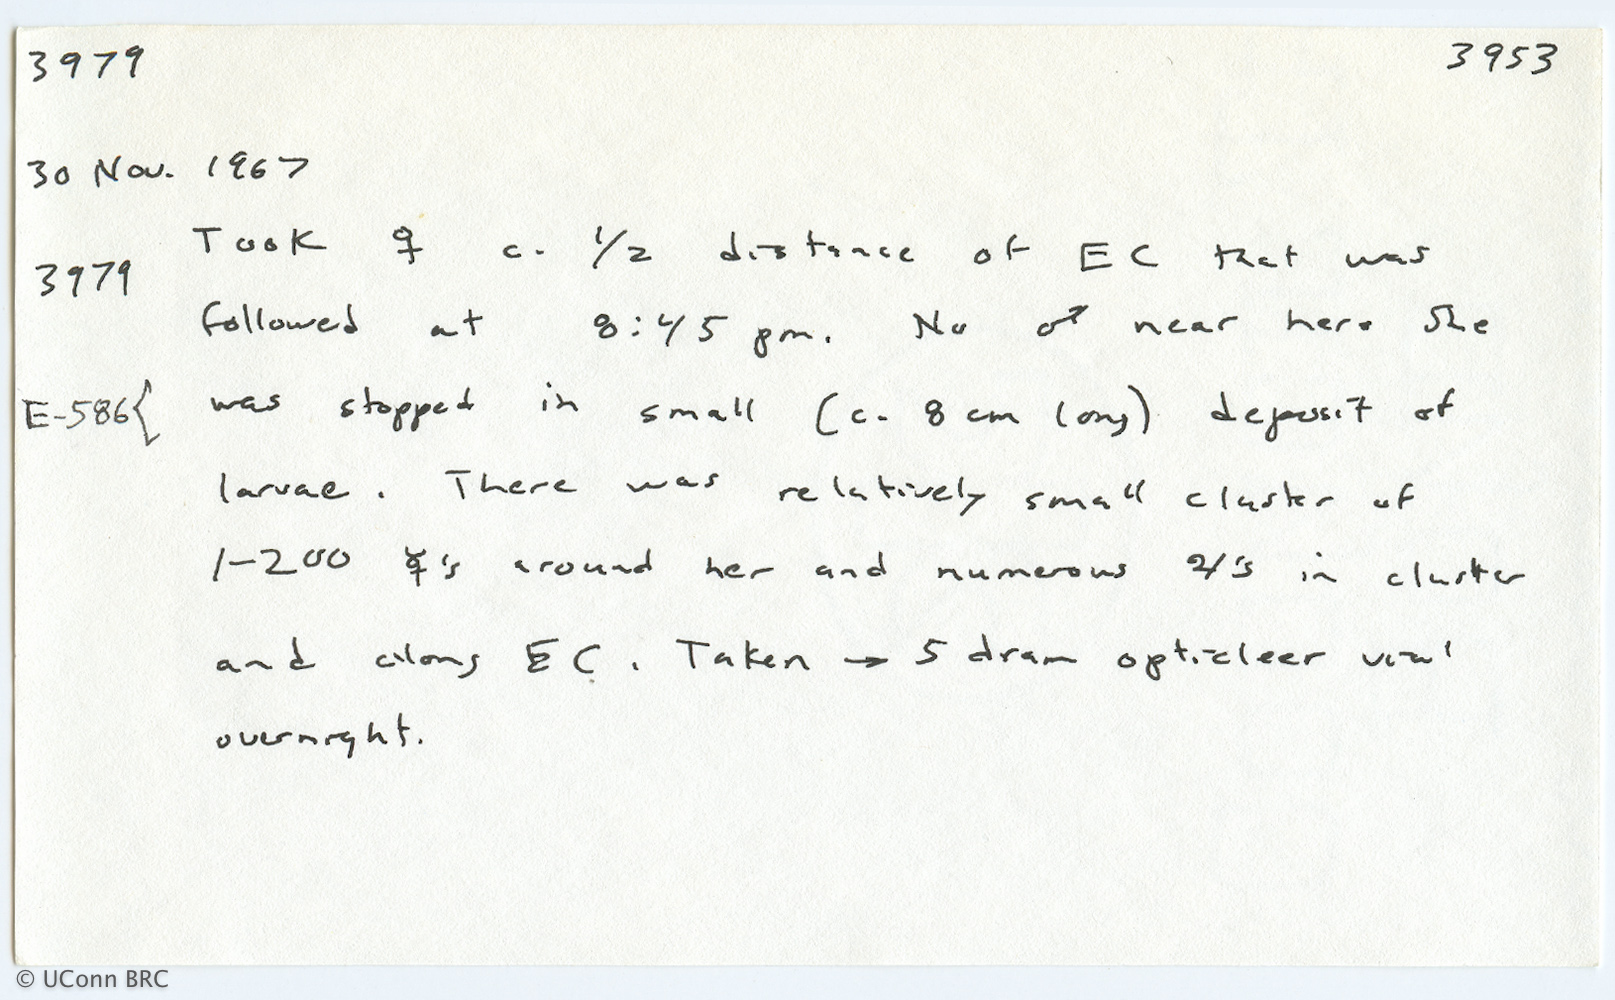 3979 3953
30 Nov. 1967
Took ♀ c. 1/2 distance of EC that was
3979
followed at 8:45 pm. No ♂ near here She
E-586{ was stopped in small (c. 8 cm long) deposit of
larvae. There was relatively small cluster of
1-200 ☿'s around her and numerous 4's in cluster
and along EC. Taken → 5 dram opticleer vial
overnight.
© UConn BRC